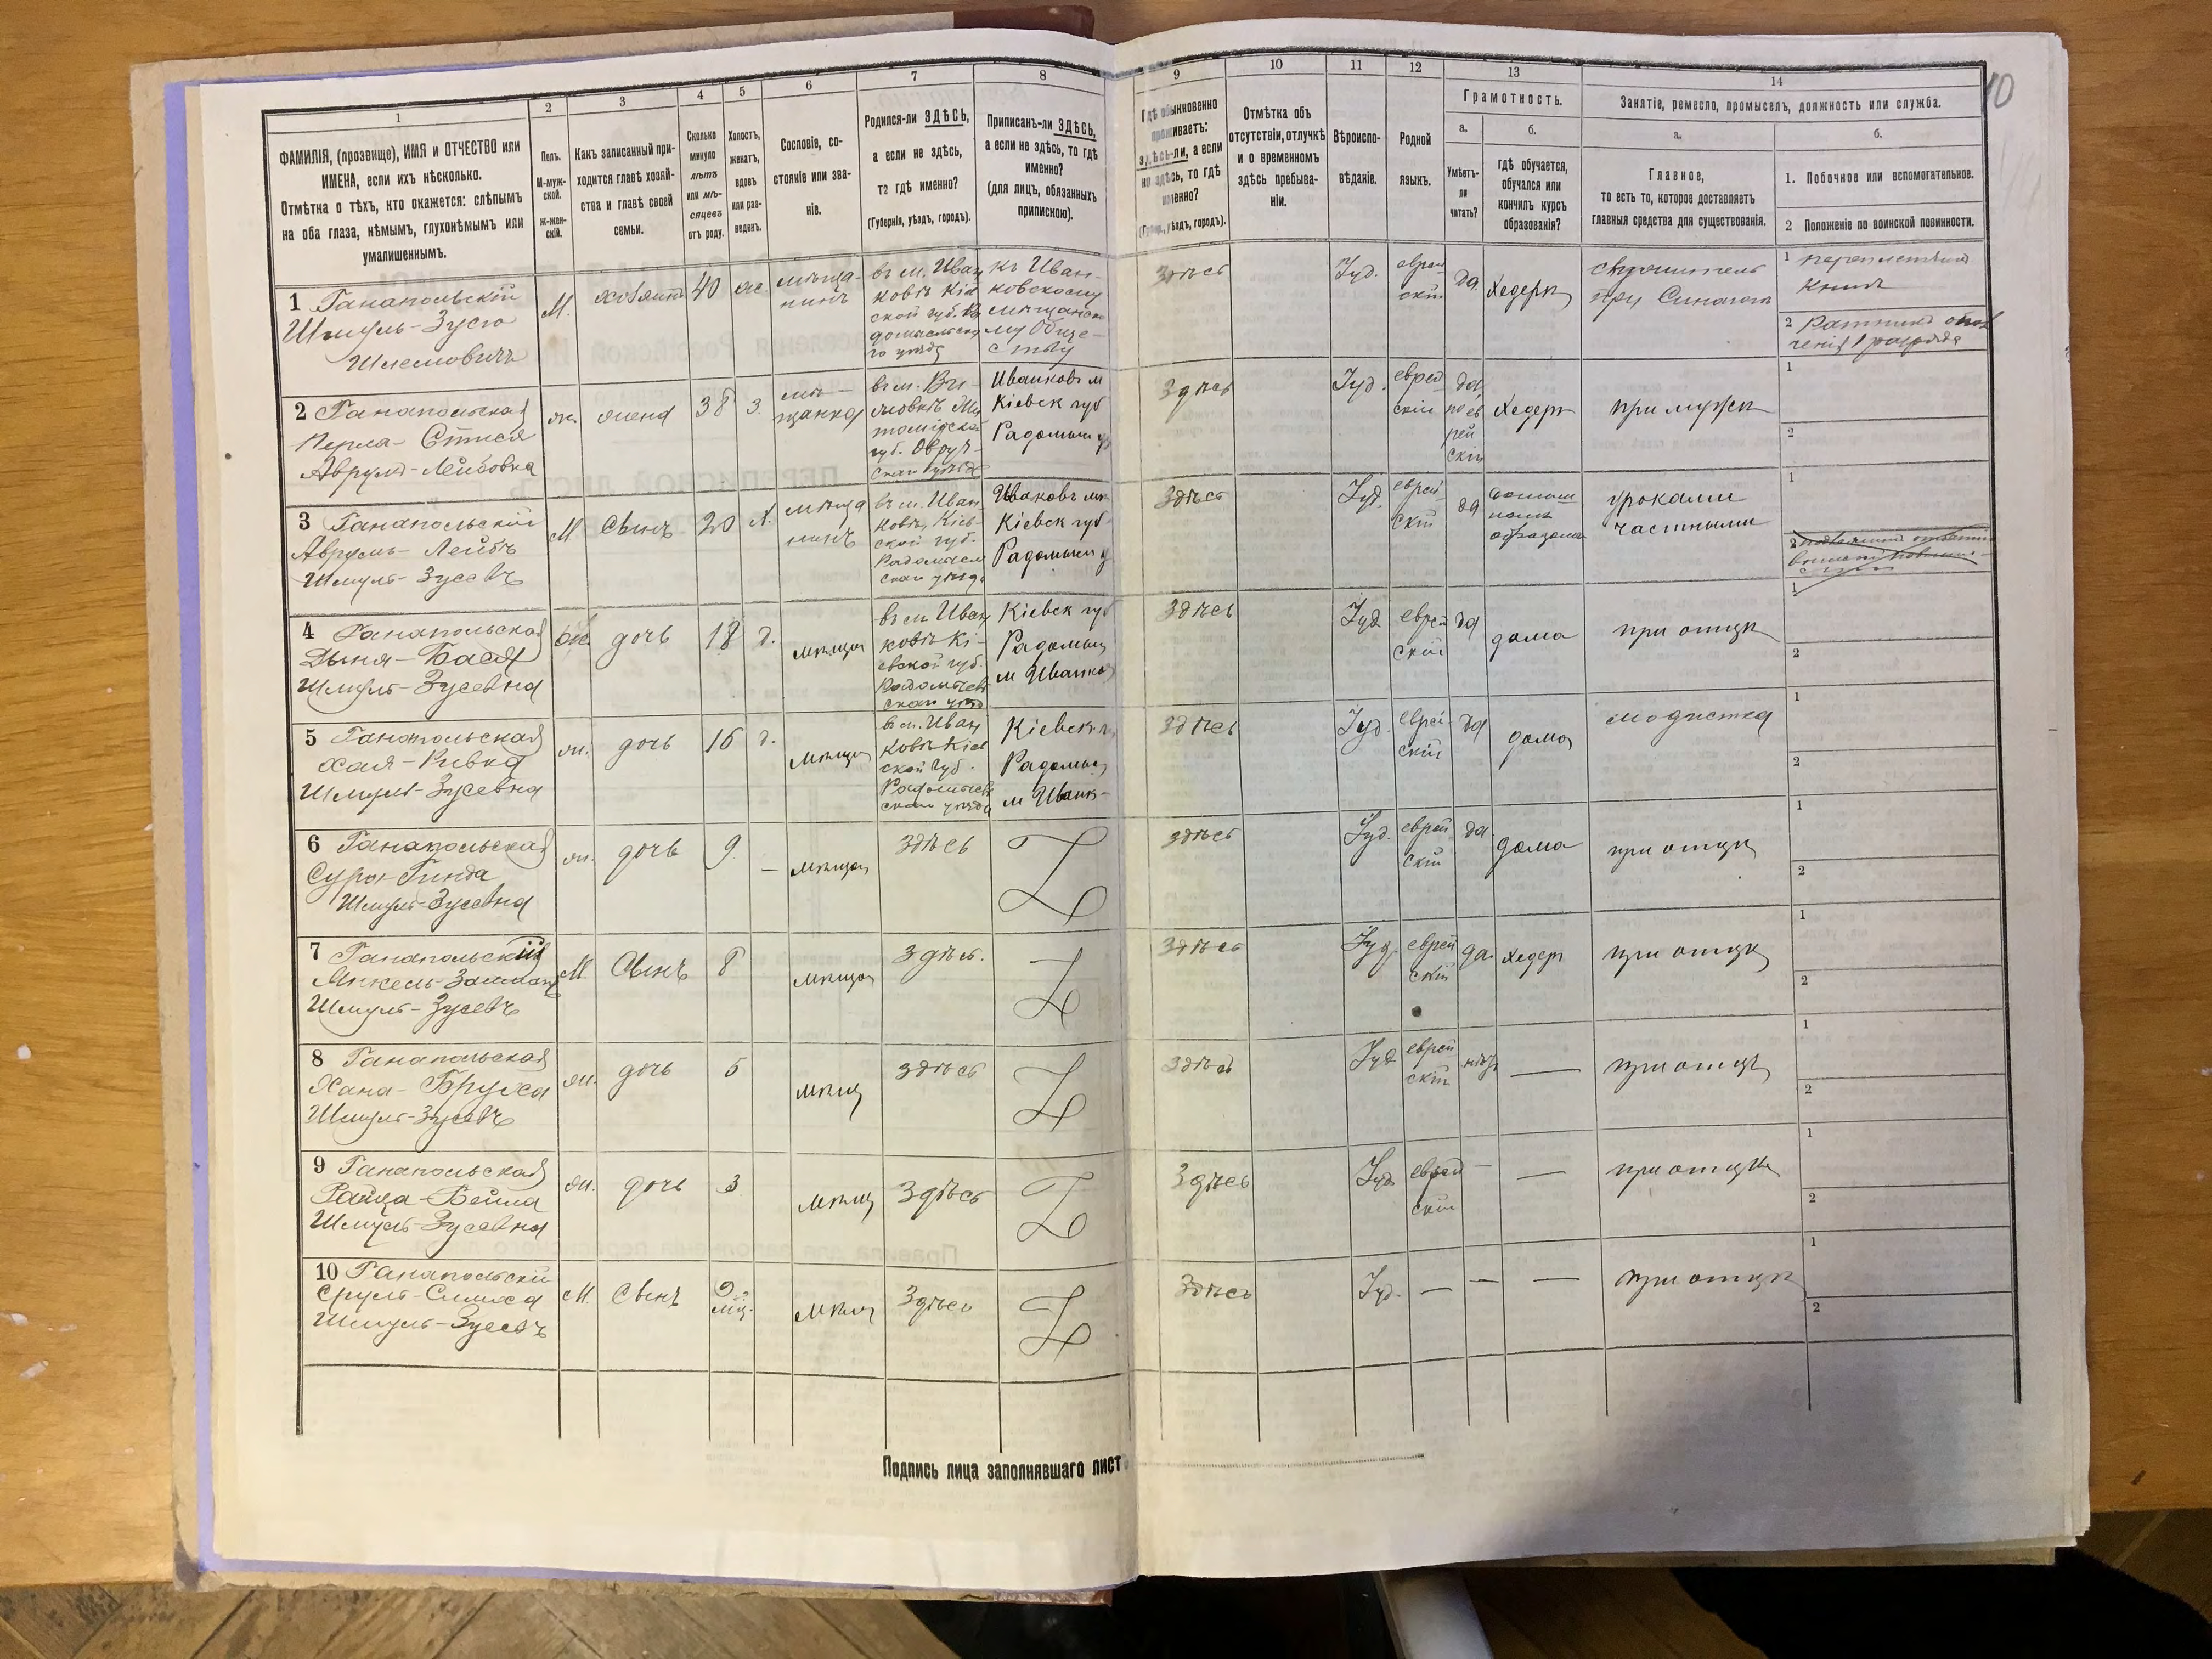 10
1
2
3
4
5
6
7
8
9
10
11
12
13
14
ФАМИЛІЯ, (прозвище), ИМЯ и ОТЧЕСТВО или
ИМЕНА, если ихъ нѣсколько.
Отмѣтка о тѣхъ, кто окажется: слѣпымъ
на оба глаза, нѣмымъ, глухонѣмымъ или
умалишеннымъ.
Полъ.
М-муж-
ской.
ж-жен-
скій.
Какъ записанный при-
ходится главѣ хозяй-
ства и главѣ своей
семьи.
Сколько
минуло
лѣтъ
или мѣ-
сяцевъ
отъ роду.
Холостъ,
женатъ,
вдовъ
или раз-
веденъ.
Сословіе, со-
стояніе или зва-
ніе.
Родился-ли ЗДѢСЬ,
а если не здѣсь,
то гдѣ именно?
(Губернія, уѣздъ, городъ).
Приписанъ-ли ЗДѢСЬ,
а если не здѣсь, то гдѣ
именно?
(для лицъ, обязанныхъ
припискою).
Гдѣ обыкновенно
проживаетъ:
здѣсь-ли, а если
не здѣсь, то гдѣ
именно?
(Губерн., уѣздъ, городъ).
Отмѣтка объ
отсутствіи, отлучкѣ
и о временномъ
здѣсь пребыва-
ніи.
Вѣроиспо-
вѣданіе.
Родной
языкъ.
Грамотность.
а.
Умѣетъ-
ли
читать?
б.
гдѣ обучается,
обучался или
кончилъ курсъ
образованія?
Занятіе, ремесло, промыселъ, должность или служба.
а.
Главное,
то есть то, которое доставляетъ
главныя средства для существованія.
б.
1. Побочное или вспомогательное.
2 Положеніе по воинской повинности.
1 Ганапольскій
Шмуль-Зусю
Шлемовичъ
М.
хозяинъ
40
ж.
мѣща-
нинъ
въ м. Иван
ковѣ Кіев
ской губ. Ра
домысльска
го уѣзда
къ Иван-
ковскому
мѣщанско
му Обще-
ству
здѣсь
Іуд.
еврей
скій
да
Хедеръ
при Синагогѣ
1
книгъ
2
2 Ганапольская
Перла-
Аврумъ-Лейбовна
ж.
жена
38
з.
мѣ-
щанка
губ. Овруч-
Иванковъ м
Кіевск губ
Радомысл у
здѣсь
Іуд.
еврей
скій
да
по ев
рей
скій
Хедеръ
при мужѣ
1
2
3 Ганапольскій
Аврумъ-Лейбъ
Шмуль-Зусевъ
М
Сынъ
20
х.
мѣща
нинъ
въ м. Иван
ковѣ, Кіев-
ской губ.
Радомысл
скаго уѣзда
Иваковъ мѣ
Кіевск губ-
Радомысл у
здѣсь
Іуд.
еврей
скій
да
образомъ
уроками
частными
1
2
4 Ганапольская
Дыня-Бася
Шмуль-Зусевна
ж.
дочь
18
д.
мѣщан
въ м. Иван
ковѣ Кі-
евской губ.
Радомысль
скаго уѣзд
Кіевск губ
Радомысл
м Иванко
здѣсь
Іуд
еврей
скій
да
дома
при отцѣ
1
2
5 Ганапольская
Хая-Ривка
Шмуль-Зусевна
ж.
дочь
16
д.
мѣщан
в м. Иван
ковѣ Кіев
ской губ.
Радомысль
скаго уѣзда
Кіевск г
Радомысл
м Иванк-
здѣсь
Іуд.
еврей-
скій
да
дома
модистка
1
2
6 Ганапольская
Сура-Гинда
Шмуль-Зусевна
ж.
дочь
9.
—
мѣщан
здѣсь
здѣсь
Іуд.
еврей
скій
да
дома
при отцѣ
1
2
7 Ганапольскій
Шмуль-Зусевъ
М.
Сынъ
8
мѣщан
здѣсь.
здѣсь
Іуд
еврей
скій
да
хедеръ
при отцѣ
1
2
8 Ганапольская
Хана-Бруха
Шмуль-Зусевъ
ж.
дочь
5
мѣщ
здѣсь
здѣсь
Іуд
еврей
скій
нѣтъ
—
при отцѣ
1
2
9 Ганапольская
Райца-Бейла
Шмуль-Зусевна
ж.
дочь
3
мѣщ
здѣсь
здѣсь
Іуд
еврей
скій
—
—
при отцѣ
1
2
10 Ганапольскій
Сруль-Симха
Шмуль-Зусевъ
М.
Сынъ
9
мц.
мѣщ
здѣсь
здѣсь
Іуд.
—
—
—
при отцѣ
1
2
Подпись лица заполнявшаго листъ